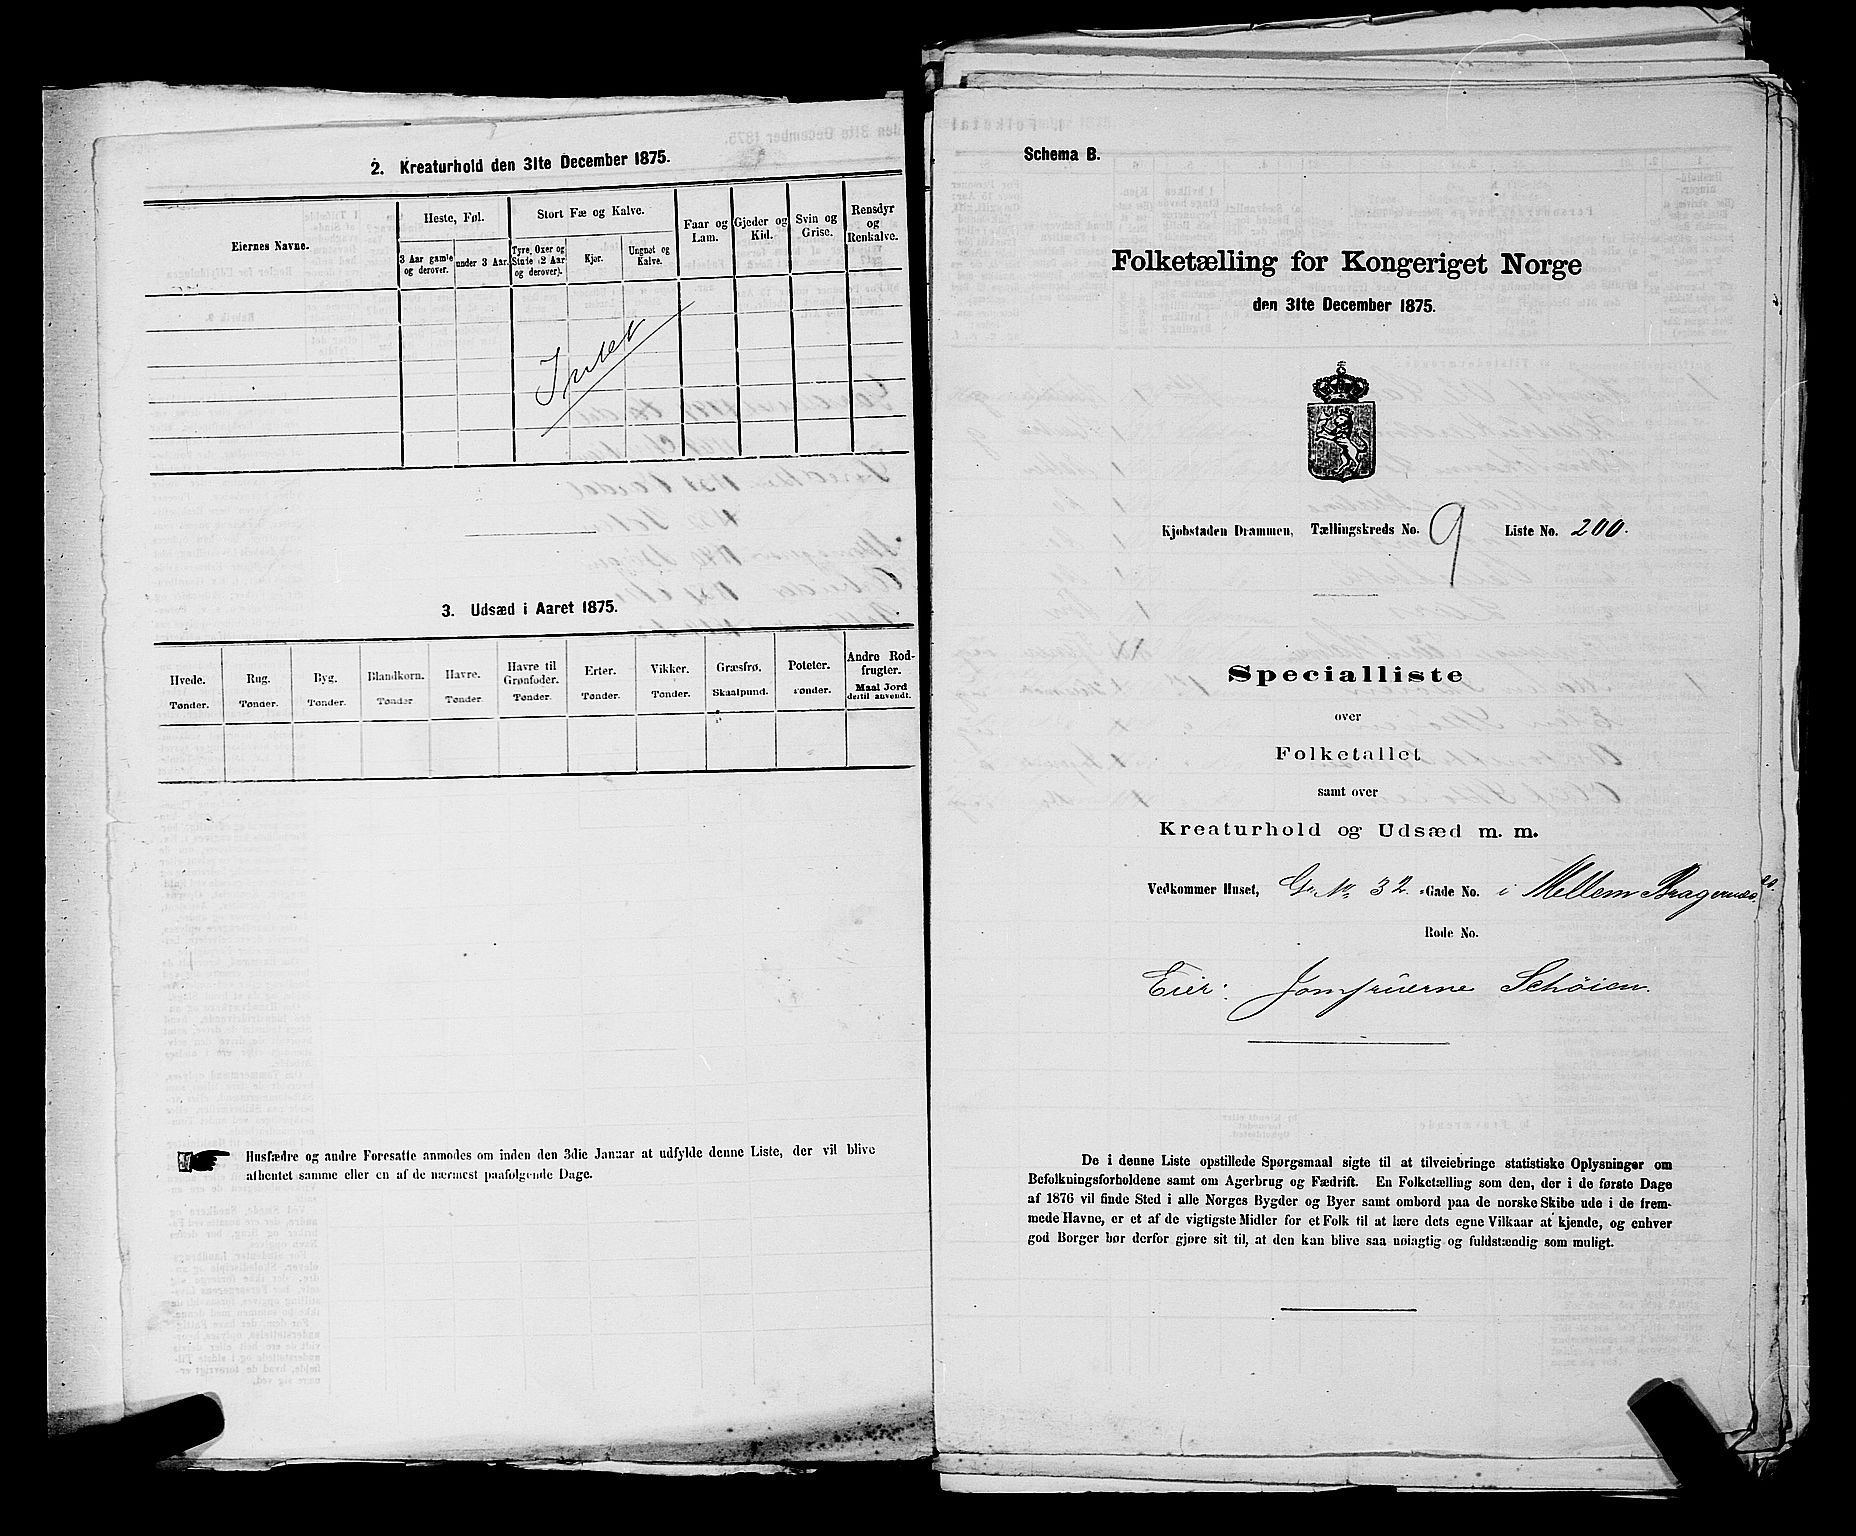 2. Kreaturhold den 31te December 1875.
Eiernes Navne.
Heste, Føl.
3 Aar gamle og derover.
under 3 Aar.
Stort Fæ og Kalve.
Tyre, Oxer og Stude (2 Aar og derover).
Kjør.
Ungnøt og Kalve.
Faar og Lam.
Gjeder og Kid.
Svin og Grise.
Rensdyr og Renkalve.
Intet
3. Udsæd i Aaret 1875.
Hvede. Tønder.
Rug. Tønder.
Byg. Tønder.
Blandkorn. Tønder
Havre. Tønder.
Havre til Grønfoder. Tønder.
Erter. Tønder.
Vikker. Tønder.
Græsfrø. Skaalpund.
Poteter. Tønder.
Andre Rodfrugter. Maal Jord dertil anvendt.
Husfædre og andre Foresatte anmodes om inden den 3die Januar at udfylde denne Liste, der vil blive
afhentet samme eller en af de nærmest paafølgende Dage.
Schema B.
Folketælling for Kongeriget Norge
den 31te December 1875.
Kjøbstaden Drammen, Tællingskreds No. 9 Liste No. 200.
Specialliste
over
Folketallet
samt over
Kreaturhold og Udsæd m. m.
Vedkommer Huset, Gr. No. 32 Gade No. i Mellem Bragernæs.
Rode No.
Eier: Jomfruerne Schøien.
De i denne Liste opstillede Spørgsmaal sigte til at tilveiebringe statistiske Oplysninger om
Befolkningsforholdene samt om Agerbrug og Fædrift. En Folketælling som den, der i de første Dage
af 1876 vil finde Sted i alle Norges Bygder og Byer samt ombord paa de norske Skibe ude i de frem-
mede Havne, er et af de vigtigste Midler for et Folk til at lære dets egne Vilkaar at kjende, og enhver
god Borger bør derfor gjøre sit til, at den kan blive saa nøiagtig og fuldstændig som muligt.